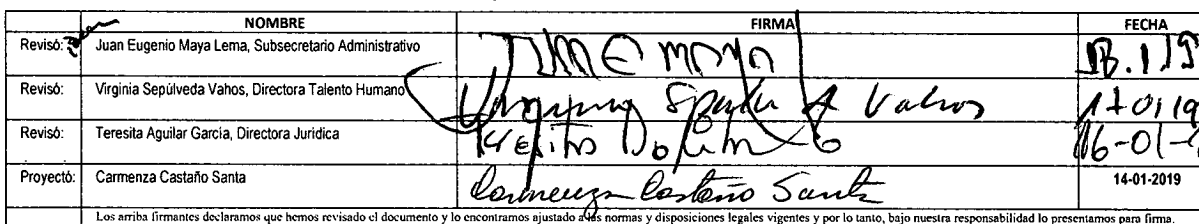 NOMBRE FIRMA FECHA
Revisó: Juan Eugenio Maya Lema, Subsecretario Administrativo
Revisó: Virginia Sepúlveda Vahos, Directora Talento Humano Vahos
Revisó: Teresita Aguilar García, Directora Jurídica 16-01-
Proyectó: Carmenza Castaño Santa Carmenza Castaño Santa 14-01-2019
Los arriba firmantes declaramos que hemos revisado el documento y lo encontramos ajustado a las normas y disposiciones legales vigentes y por lo tanto, bajo nuestra responsabilidad lo presentamos para firma.